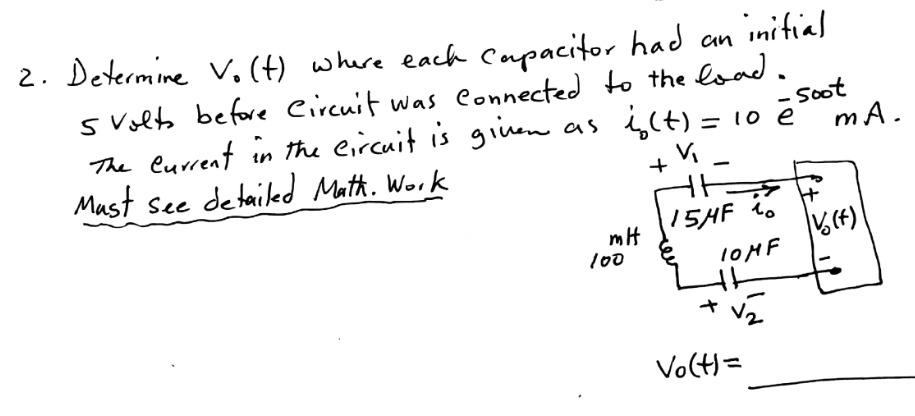 2. Determine V₀(t) where each capacitor had an initial
5 Volts before circuit was connected to the load.
The current in the circuit is given as i₀(t) = 10 e^-500t mA.
Must see detailed Math. Work
+ V₁ -
15μF i₀
+
V₀(t)
-
mH
100
10μF
+ V₂ -
V₀(t) =